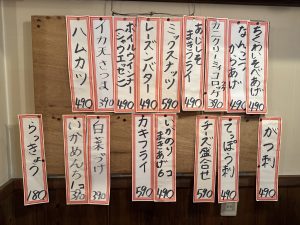 ちくわいそべあげ
490
なんこつ
からあげ
490
カニクリーミィコロッケ
390
あじそ
まきフライ
490
ミックスナッツ
590
レーズンバター
490
ポークウインナー
(シャウエッセン)
490
イカ天さつま
390
ハムカツ
490
かつ刺
490
てっぽう刺
490
チーズ盛合せ
590
いかのり
まきあげ6コ
490
カキフライ
590
白菜づけ
390
いかめんち1コ
390
らっきょう
180